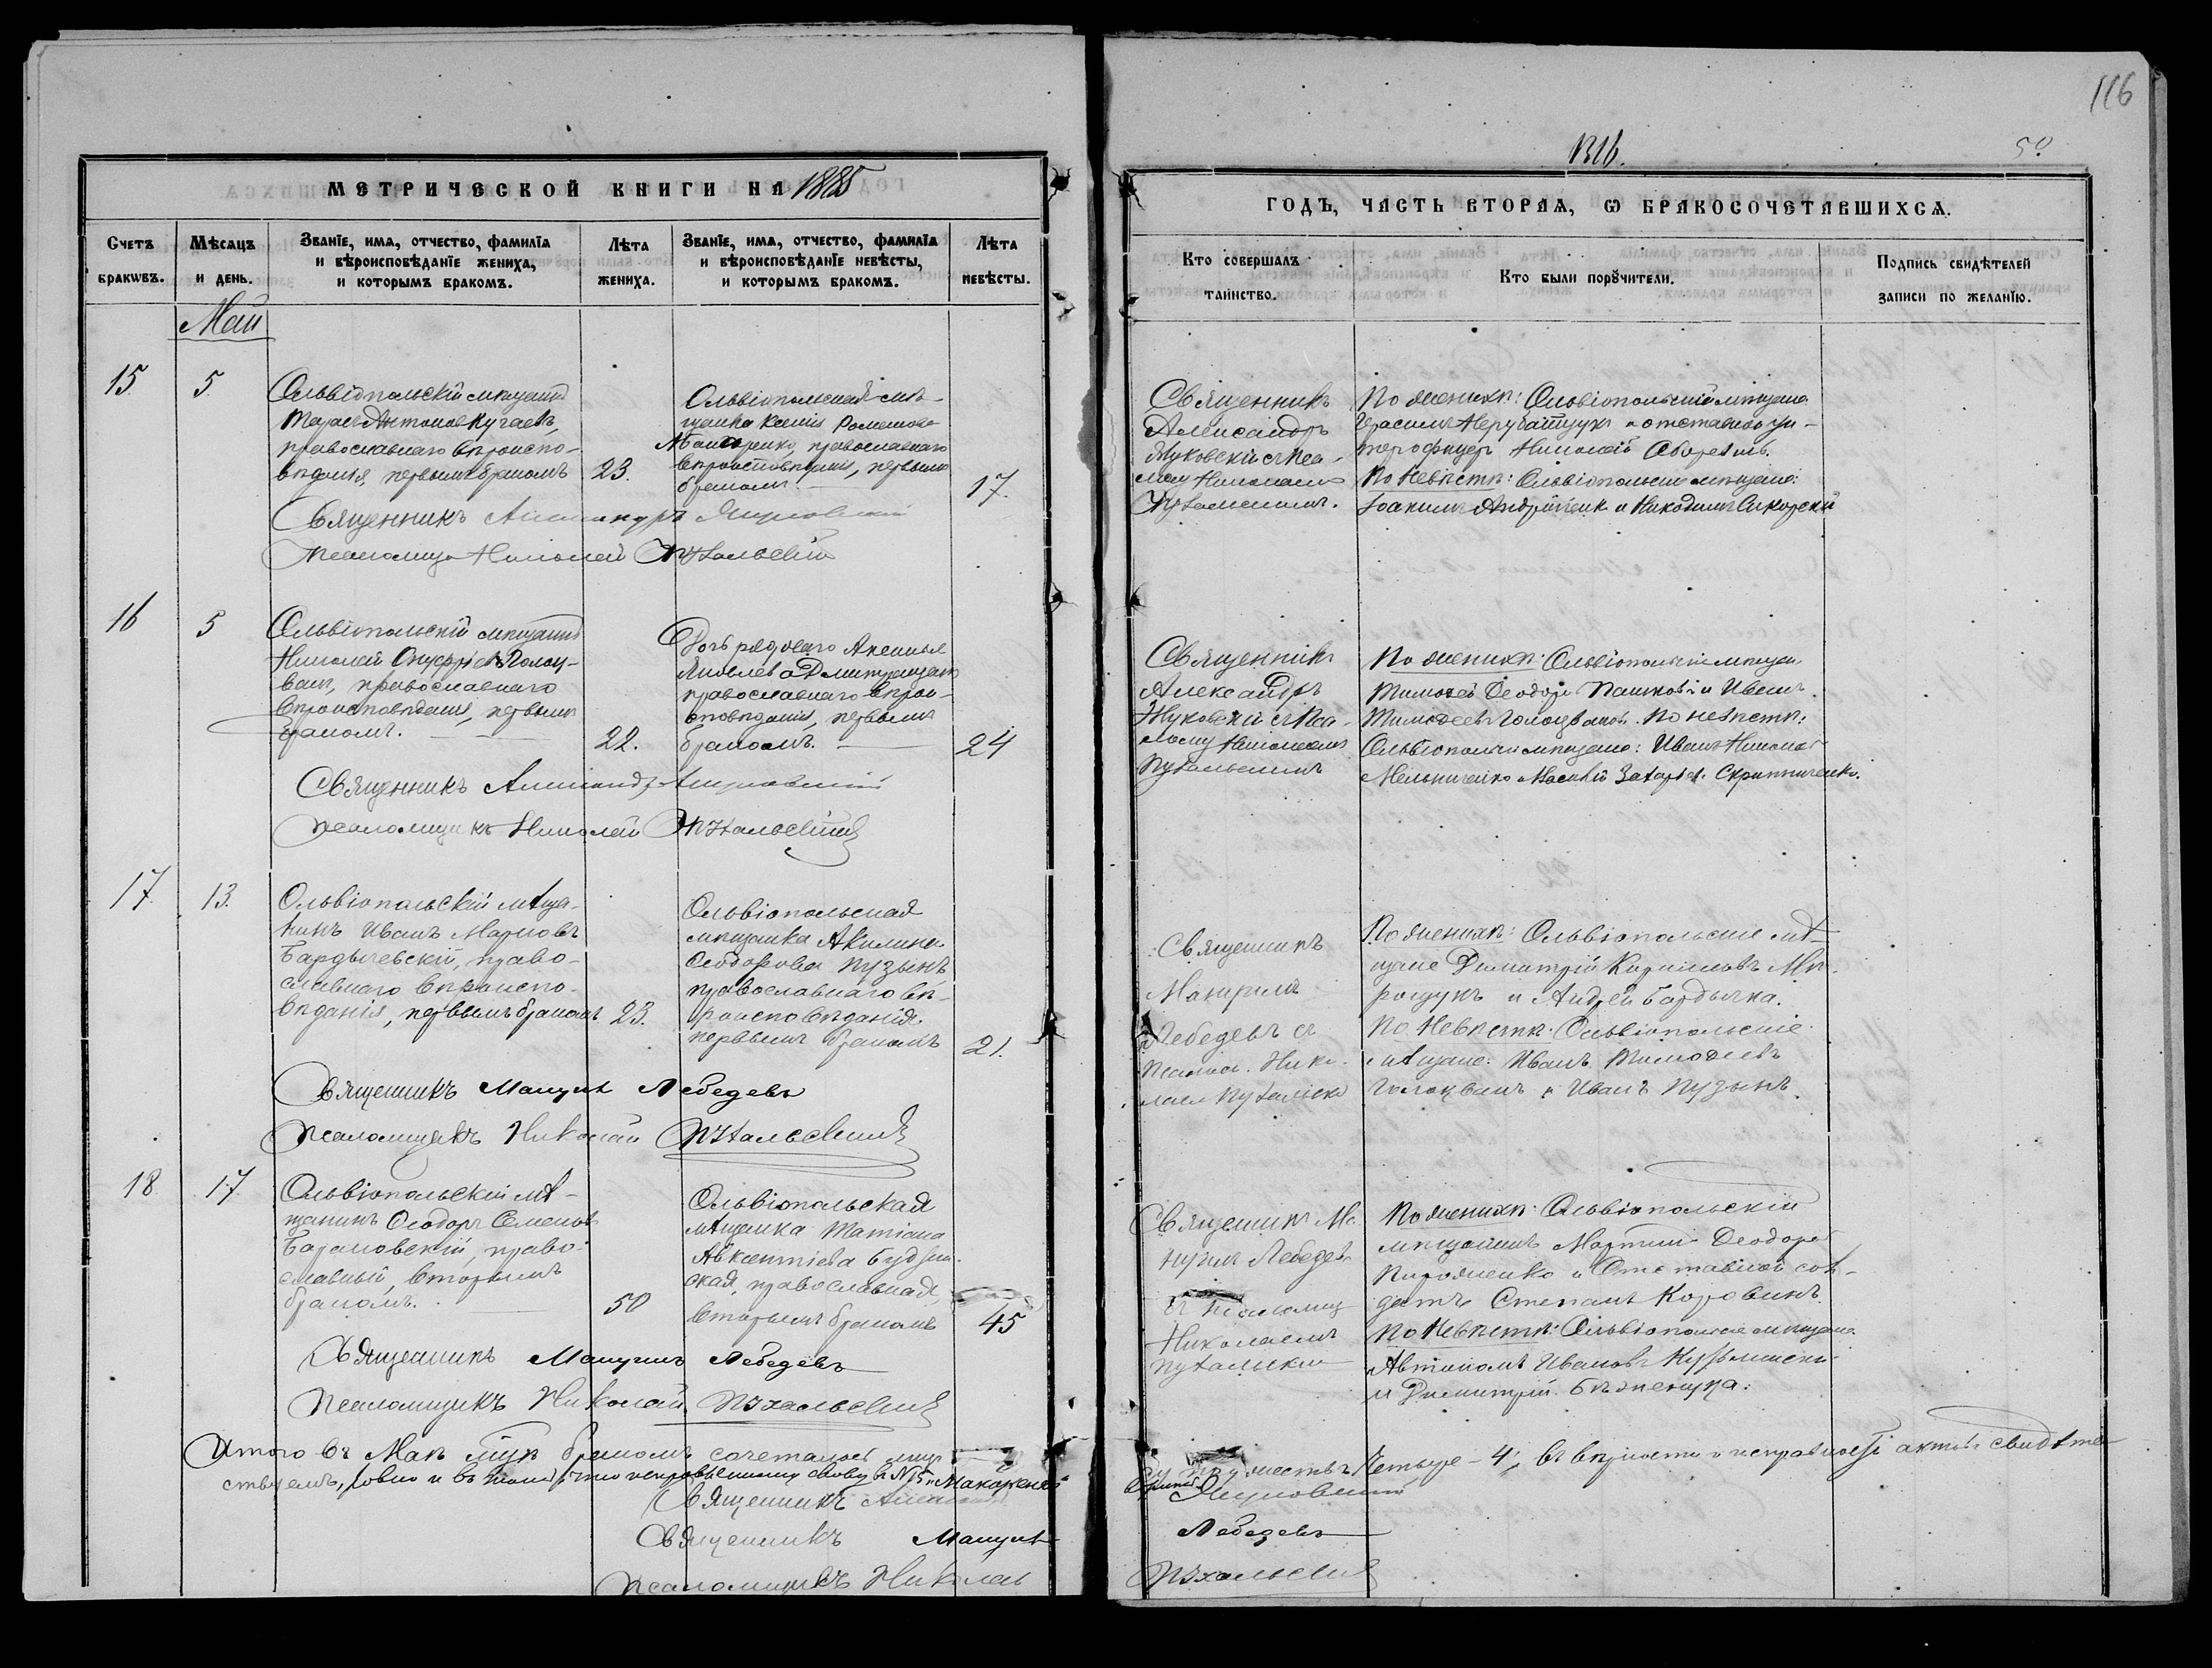 116
1316.
50
МЕТРИЧЕСКОЙ КНИГИ НА 1885
ГОДЪ, ЧАСТЬ ВТОРАЯ, Ѡ БРАКОСОЧЕТАВШИХСЯ.
Счетъ браковъ.
Мѣсяцъ и день.
Званїе, имя, отчество, фамилїа
и вѣроисповѣданїе жениха,
и которымъ бракомъ.
Лѣта
жениха.
Званїе, имя, отчество, фамилїа
и вѣроисповѣданїе невѣсты,
и которымъ бракомъ.
Лѣта
невѣсты.
Кто совершалъ
таинство.
Кто были порȣчители.
Подпись свидѣтелей
записи по желанїю.
Май
15.
5.
Ольвіопольскій мѣщанинъ
Тарасъ Антоновъ
православнаго вѣроиспо-
вѣданія, первымъ бракомъ
23.
Ольвіопольская мѣ-
щанка Ксенія Романова
Макаренко, православнаго
вѣроисповѣданія, первымъ
бракомъ.
17.
Священникъ Александръ
Жуковскій съ Пса-
лом Николаемъ
Пухальскимъ.
По женихѣ: Ольвіопольскій мѣщане
Герасимъ и отставной ун-
теръ офицеръ Николай
По Невѣстѣ: Ольвіопольскіе мѣщане:
Іоакимъ и Никодимъ Сикорскій
Священникъ Александръ Жуковскій
псаломщ Николай Пухальскій
16
5
Ольвіопольскій мѣщанинъ
Николай Онуфріевъ Голоц-
ванъ, православнаго
вѣроисповѣданія, первымъ
бракомъ.
22.
Дочь рядоваго Аксинья
Яковлева
православнаго вѣрои-
сповѣданія, первымъ
бракомъ.
24
Священникъ
Александръ
Жуковскій съ Пса-
ломщ Николаемъ
Пухальскимъ
По женихѣ: Ольвіопольскіе мѣщан.
Тимофей Ѳеодоръ и Иванъ
Тимофеевъ Голоцвановъ. По невѣстѣ:
Ольвіопольскіе мѣщане: Иванъ Николаевъ
Мельниченко Захарьевъ Скрипниченко.
Священникъ Александръ Жуковскій
псаломщикъ Николай Пухальскій
17.
13.
Ольвіопольскій мѣща-
нинъ Иванъ Марковъ
Бардычевскій, право-
славнаго вѣроиспо-
вѣданія, первымъ бракомъ
23.
Ольвіопольская
мѣщанка Акилина
Ѳеодорова Пузынъ
православнаго вѣ-
роисповѣданія.
первымъ бракомъ
21.
Священникъ
Мануилъ
Лебедевъ съ
Псалом. Нико-
лаем Пухальск
По женихѣ: Ольвіопольскіе мѣ-
щане Димитрій Кирилловъ
и Андрей
По Невѣстѣ: Ольвіопольскіе
мѣщане: Иванъ Тимофеевъ
Голоцванъ и Иванъ Пузынъ.
Священникъ Мануилъ Лебедевъ
Псаломщикъ Николай Пухальскій
18
17.
Ольвіопольскій мѣ-
щанинъ Ѳеодоръ Семеновъ
Барановскій, право-
славный, вторымъ
бракомъ.
50
Ольвіопольская
мѣщанка Татіана
Авксентіева
ская, православная,
вторымъ бракомъ
45
Священникъ Ма-
нуилъ Лебедевъ
съ псаломщ
Николаемъ
Пухальскимъ
По женихѣ: Ольвіопольскій
мѣщанинъ Мартинъ Ѳеодоровъ
и Отставной сол-
датъ Степанъ Коровинъ.
По Невѣстѣ: Ольвіопольскіе мѣщане
Автономъ Ивановъ
и Димитрій
Священникъ Мануилъ Лебедевъ
Псаломщикъ Николай Пухальскій
Итого въ Маѣ бракомъ сочеталось
четыре - 4; въ вѣрности и исправности актовъ свидѣтель-
ствуемъ, ровно и въ томъ, что исправленному слову въ № 15 Макаренко
Священникъ Александръ Жуковскій
Священникъ Мануилъ Лебедевъ
Псаломщикъ Николай Пухальскій